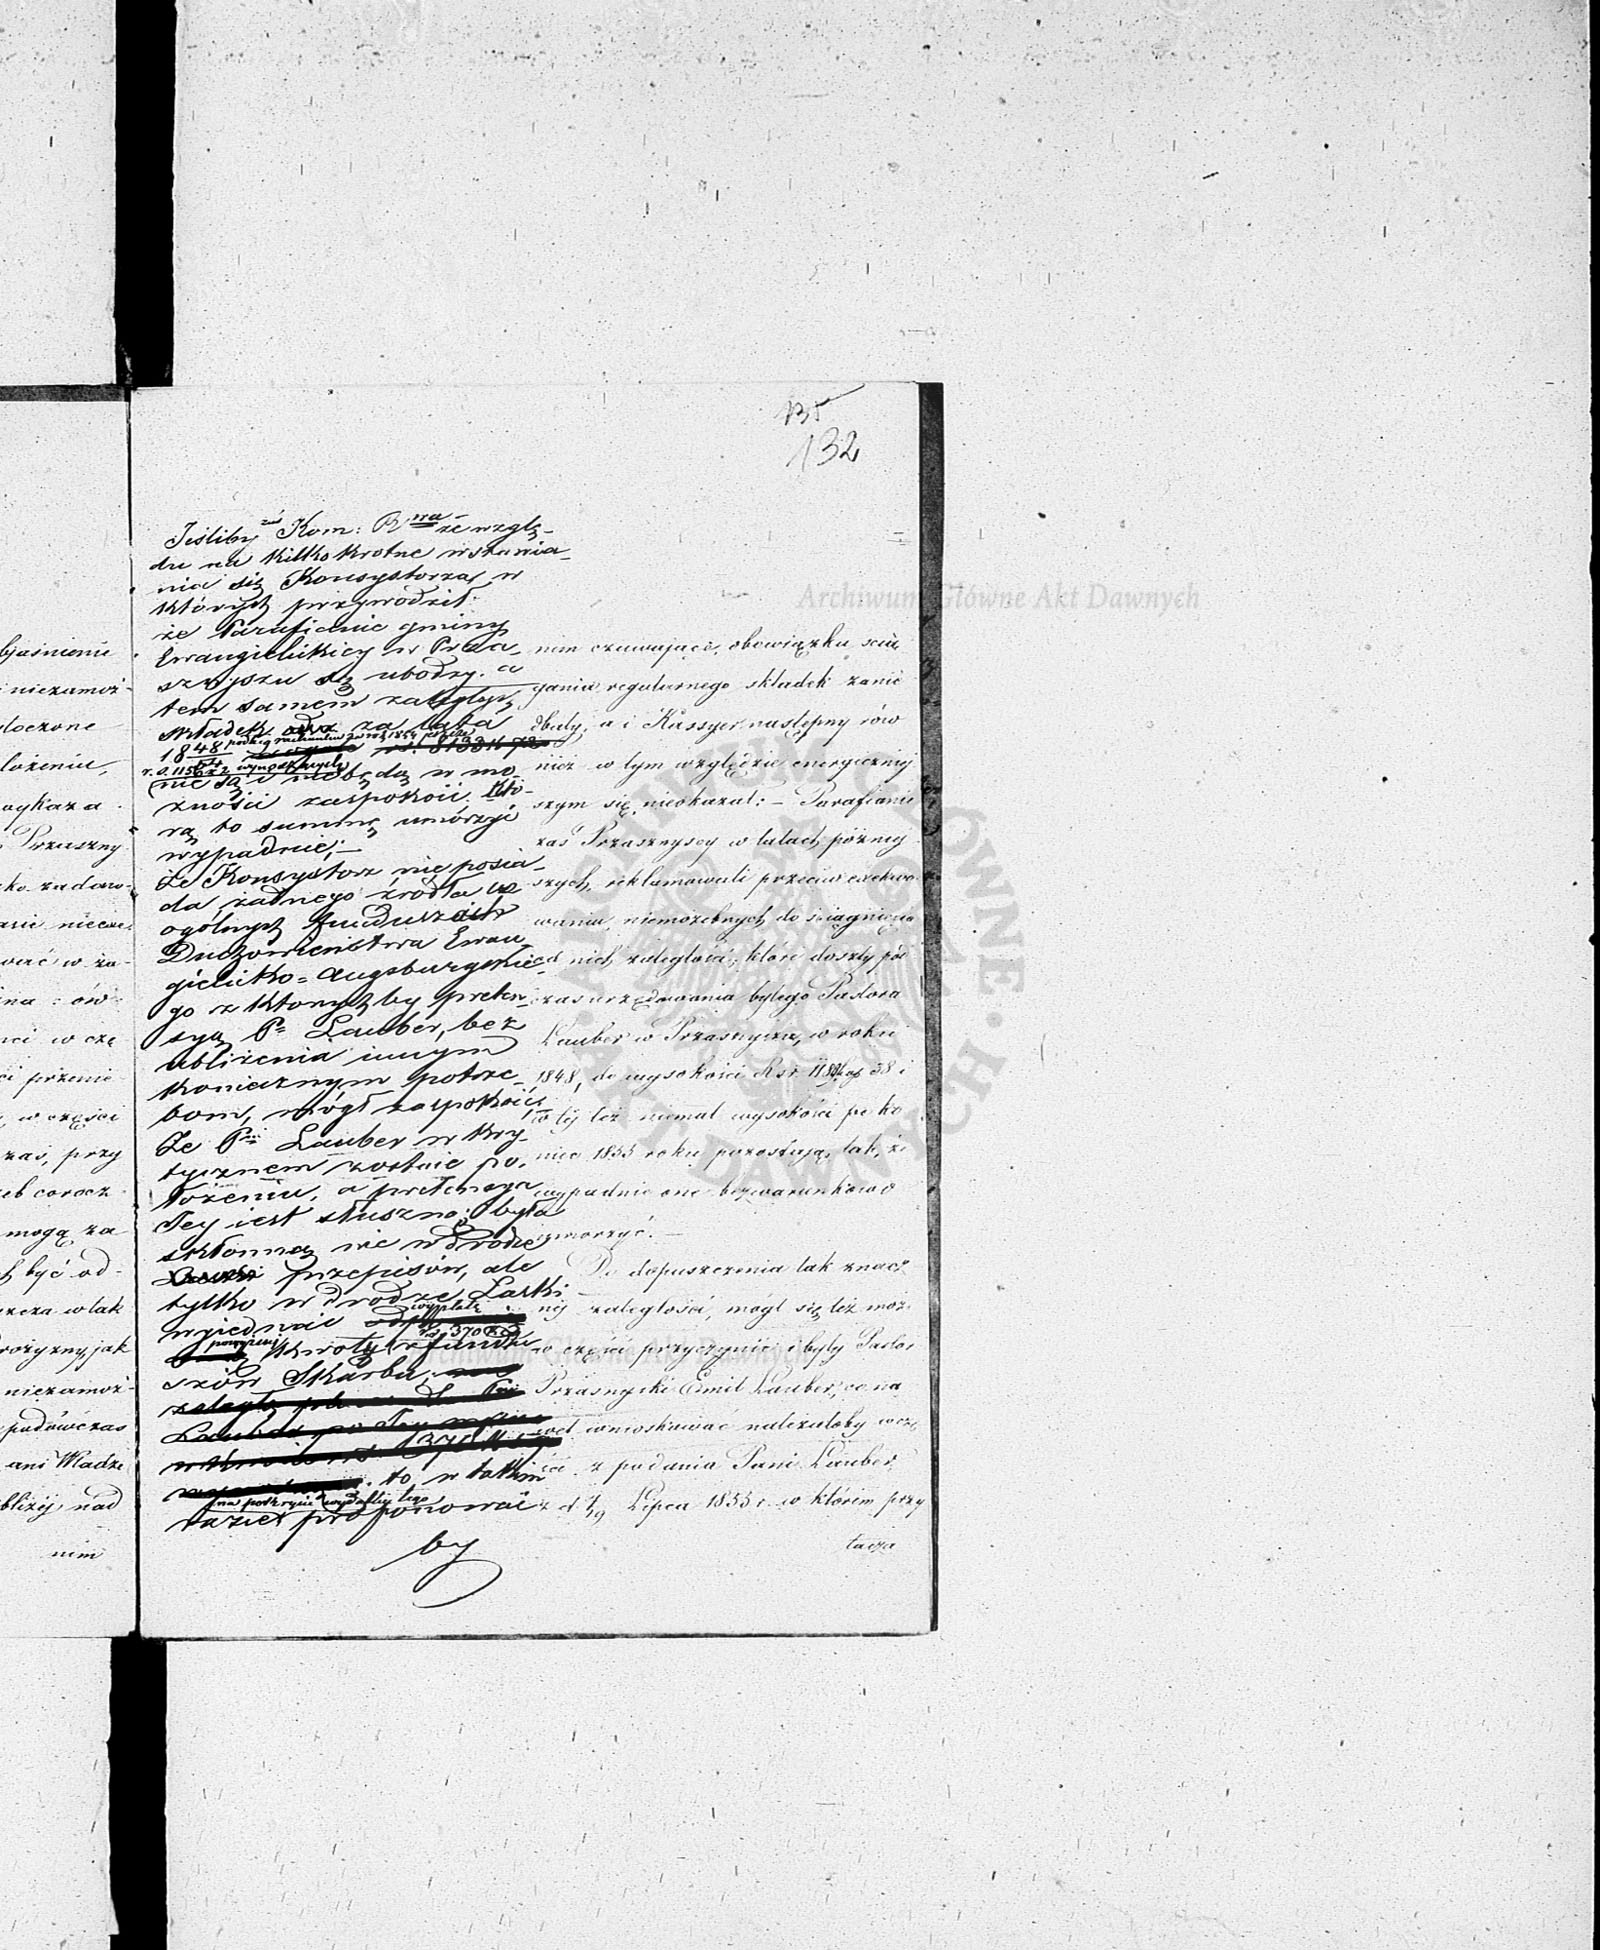 135
132
Jeśliby zaś Kom: Rwa ze wzglę-
du na kilkokrotne wstawia-
nia się Konsystorza, w
których przywodził:
że Parafianie gminy
Ewangielickiey w Prza-
sznyszu są ubodzy. a
tem samem zaległych
składek za lata
1848/54 podług rachunku za rok 1854 jeszcze
wynoszących
nie są i niebędą w mo-
żności zaspokoić. któ-
rą to summę umorzyć
wypadnie; —
Że Konsystorz nie posia-
da żadnego źródła w
ogólnych funduszach
Duchowieństwa Ewan-
gielicko-Augsburgskie-
go z którychby preten-
syą Pi Lauber, bez
ubliżenia innym
koniecznym potrze-
bom, mógł zaspokoić
Że Pni Lauber w kry-
tycznem zostaie po-
łożeniu, a pretensya
Jey iest słuszną; była
skłonną nie w drodze
przepisów, ale
tylko w drodze Łaski
wyjednać wypłatę
powyższej kwoty z fundu-
szów Skarbu,
to w takim
razie na pokrycie wydatku tego proponować
by
nim czuwające, obowiązku ścią
gania regularnego składek zanie
dbały, a i Kassyer następny rów
nież w tym względzie energiczniej
szym się nieokazał: — Parafianie
zaś Przasnyscy w latach później
szych, reklamowali przeciw exekwo
waniu niemożebnych do ściągnięcia
od nich zaległości, które doszły pod
czas urzędowania byłego Pastora
Lauber w Przasnyszu, w roku
1848, do wysokości Rsr 38 i
w tej też niemal wysokości po ko
niec 1855 roku pozostają, tak, że
wypadnie one bezwarunkowo
umorzyć. —
Do dopuszczenia tak znacz
nej zaległości, mógł się też może
w części przyczynić i były Pastor
Przasnyski Emil Lauber, co na
wet wnioskować należałoby w czę
ści z podania Pani Lauber
z d 7/19 Lipca 1855 r. w którem przy
tacza
bjaśnienie
niezamoż-
łoczone
łożeniu,
wykaza
Przaszny
ko zadowo-
wać w za-
ina: ów-
nci w czę
ci przenie-
w części
zas, przy
eb corocz
mogą za
h być od-
szcza w tak
rożyzny, jak
niezamoż-
podówczas
ani Władze
bliżej nad
nim
Archiwum Główne Akt Dawnych
ARCHIWUM GŁÓWNE AKT DAWNYCH
Archiwum Główne Akt Dawnych